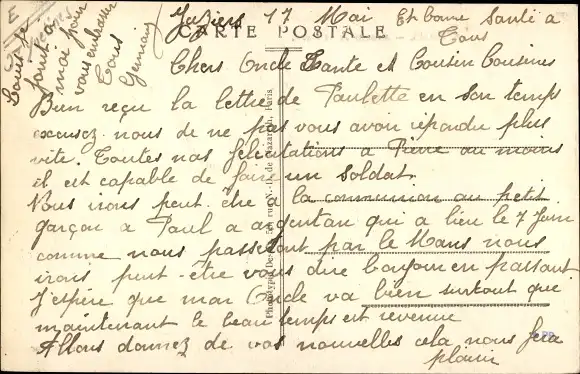 Juziers 17 Mai Et bonne Santé à
Tous
CARTE POSTALE
Chers Oncle Tante et Cousin Cousines
Bien reçu la lettre de Paulette en son temps
excusez-nous de ne pas vous avoir répondu plus
vite. Toutes nos félicitations à Pierre au moins
il est capable de faire un Soldat
Nous irons peut-être à la communion au petit
garçon à Paul à argentan qui a lieu le 7 Juin
comme nous passeront par le Mans nous
irons peut-être vous dire bonjour en passant
J'espère que mon Oncle va bien surtout que
maintenant le beau temps est revenue
Allons donnez de vos nouvelles cela nous fera
plaisir
pour
moi
vous embrasser
Tous
Germain